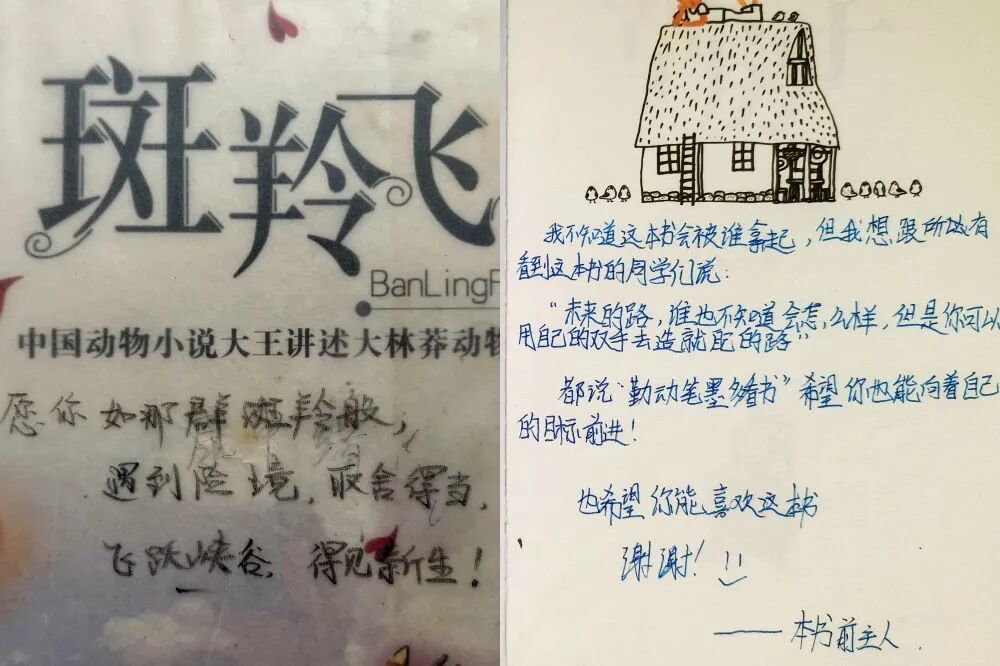 斑羚飞
BanLingF
中国动物小说大王讲述大林莽动物
愿你如那群斑羚般，
遇到险境，取舍得当，
飞跃峡谷，得见新生！
我不知道这本书会被谁拿起，但我想跟所以有
看到这本书的同学们说：
“未来的路，谁也不知道会怎么样，但是你可以
用自己的双手去造就 的路”
都说“勤动笔墨多看书”希望你也能向着自己
的目标前进！
也希望你能喜欢这本书
谢谢！
——本书前主人